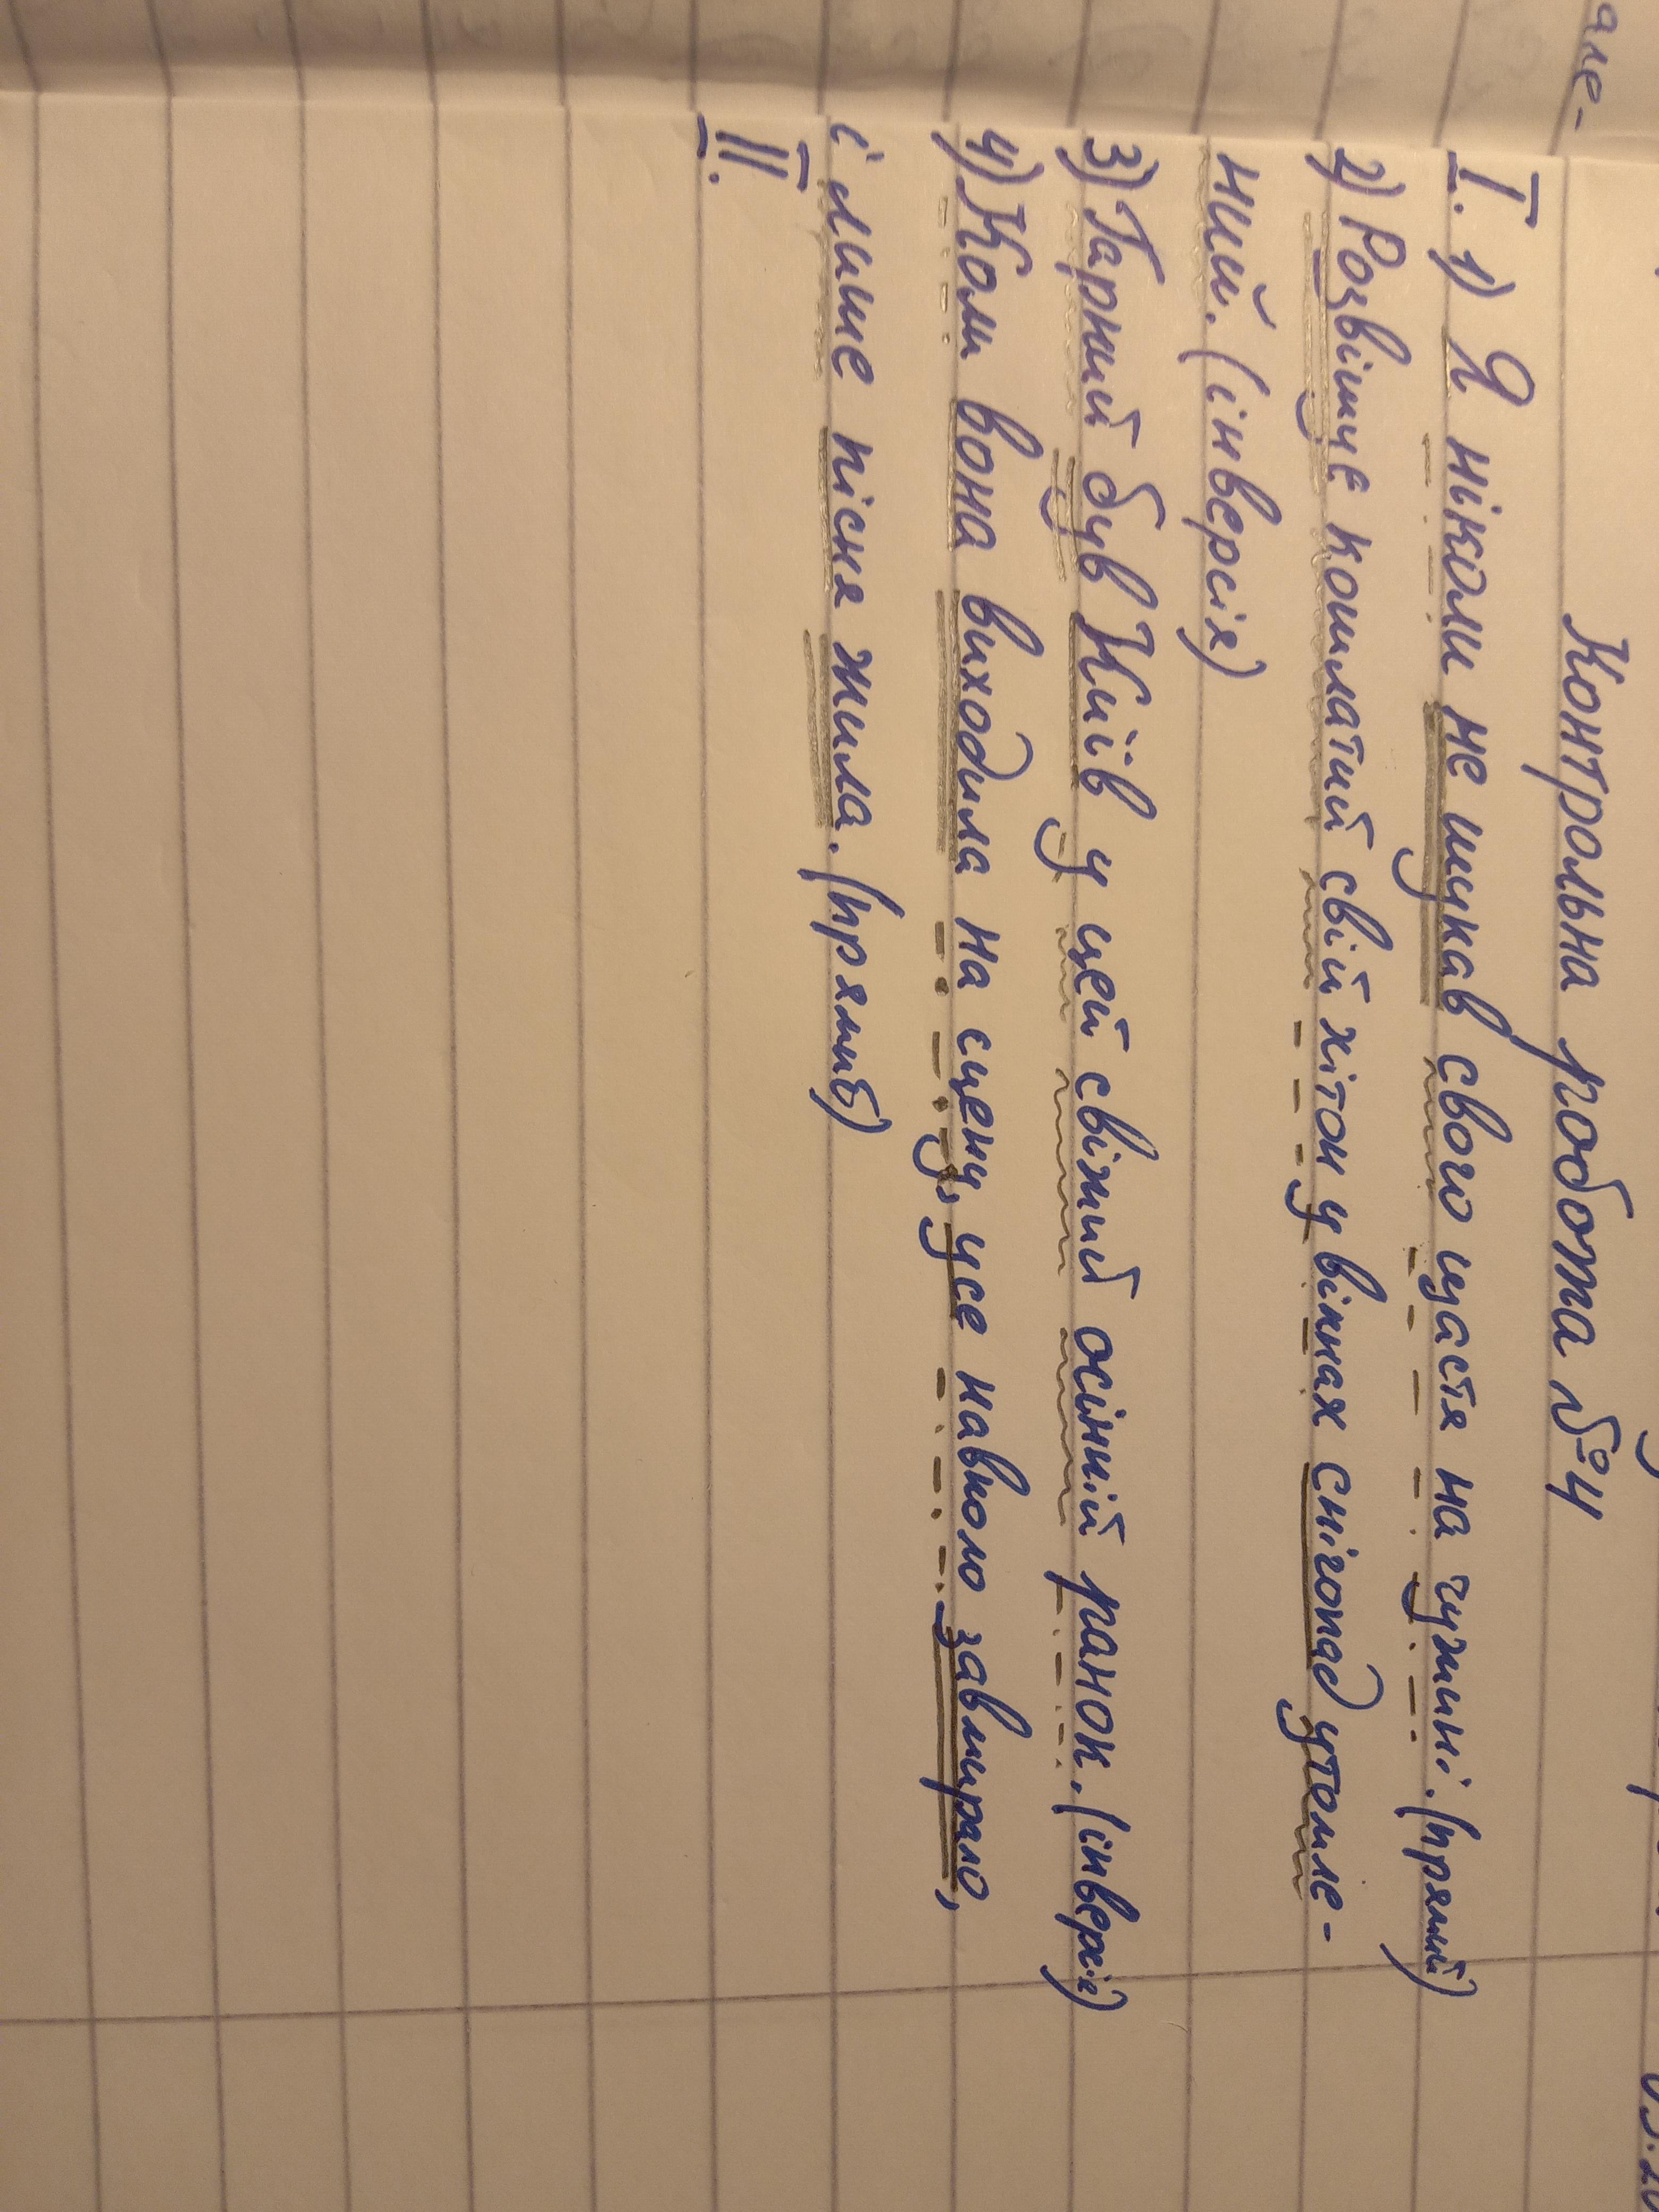 але-
Контрольна робота №4
I. 1) Я ніколи не шукав свого щастя на чужині. (прямий)
2) Розвішує кошлатий свій хітон у вікнах снігопад утомле-
ний. (інверсія)
3) Гарний був Київ у цей свіжий осінній ранок. (інверсія)
4) Коли вона виходила на сцену, усе навколо завмирало,
і лише пісня жила. (прямий)
II.